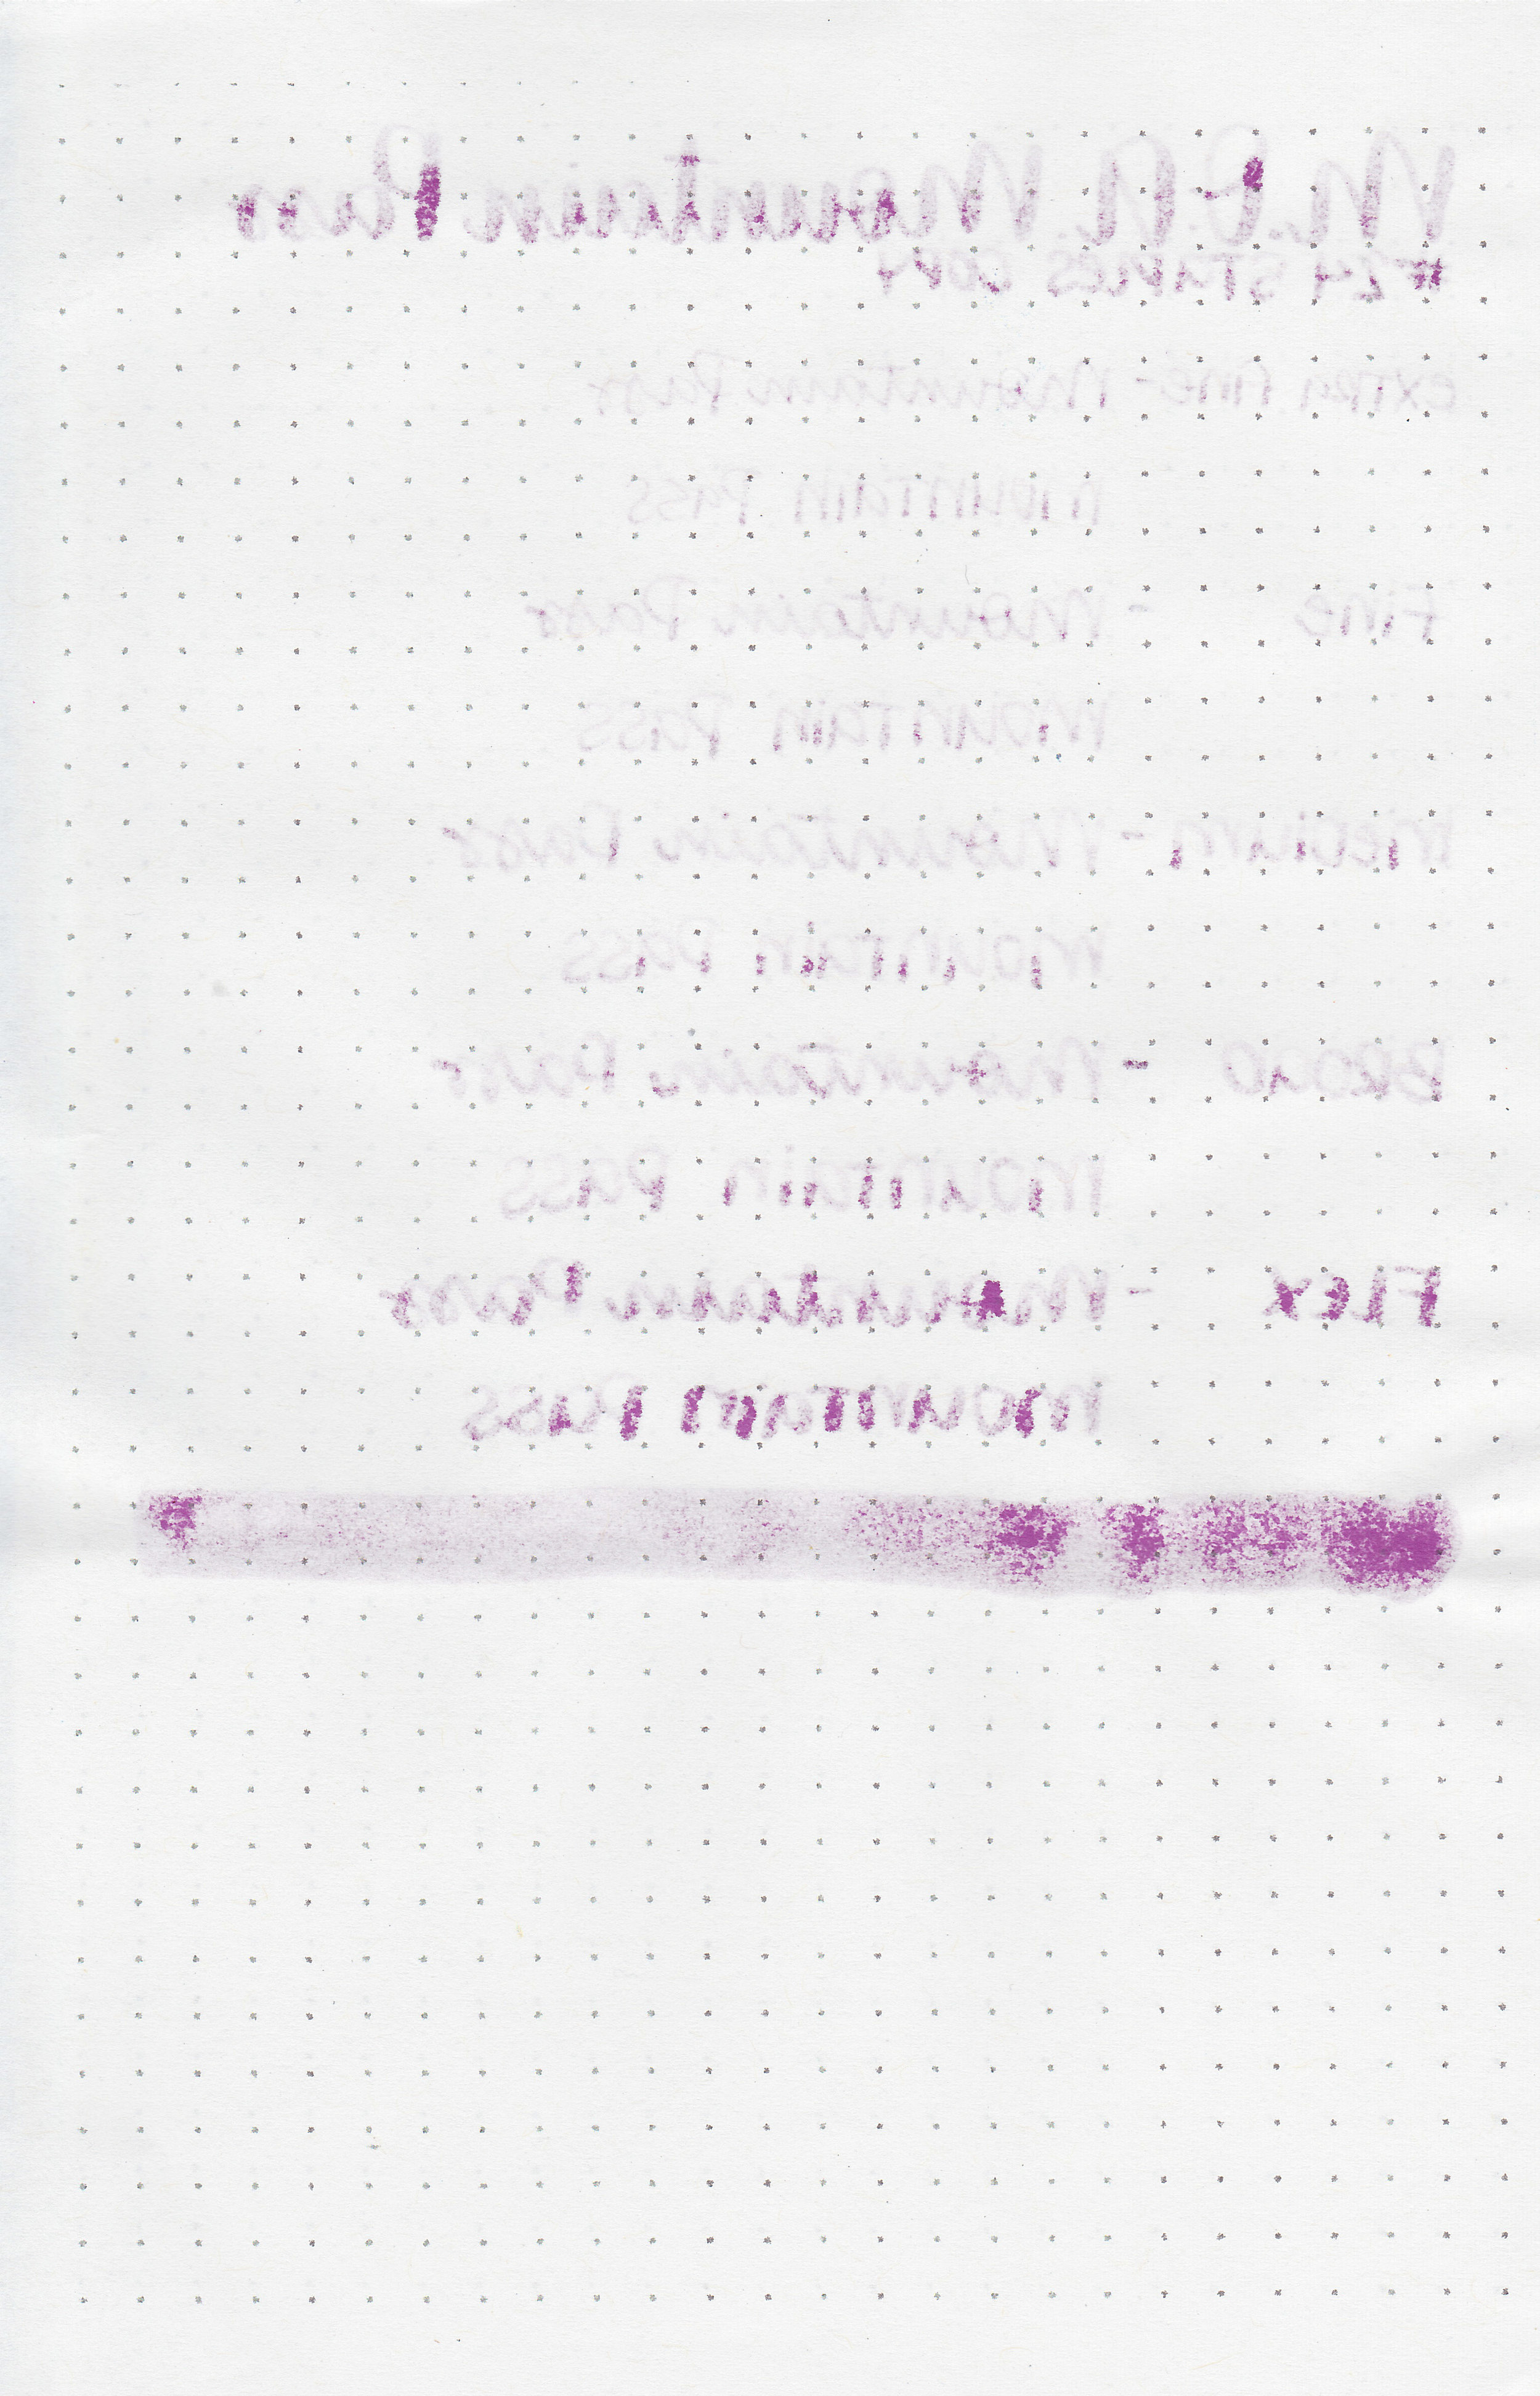 M.D.A. Mountain Pass
#24 STAPLES COPY
EXTRA FINE - Mountain Pass
Mountain Pass
FINE - Mountain Pass
Mountain Pass
Medium - Mountain Pass
Mountain Pass
BROAD - Mountain Pass
Mountain Pass
FLEX - Mountain Pass
Mountain Pass